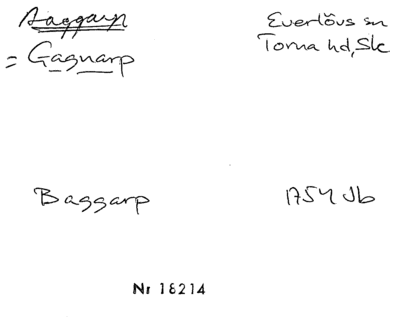 Baggarp Everlövs sn
= Gagnarp Torna hd, Sk
Baggarp 1754 Jb
Nr 18214